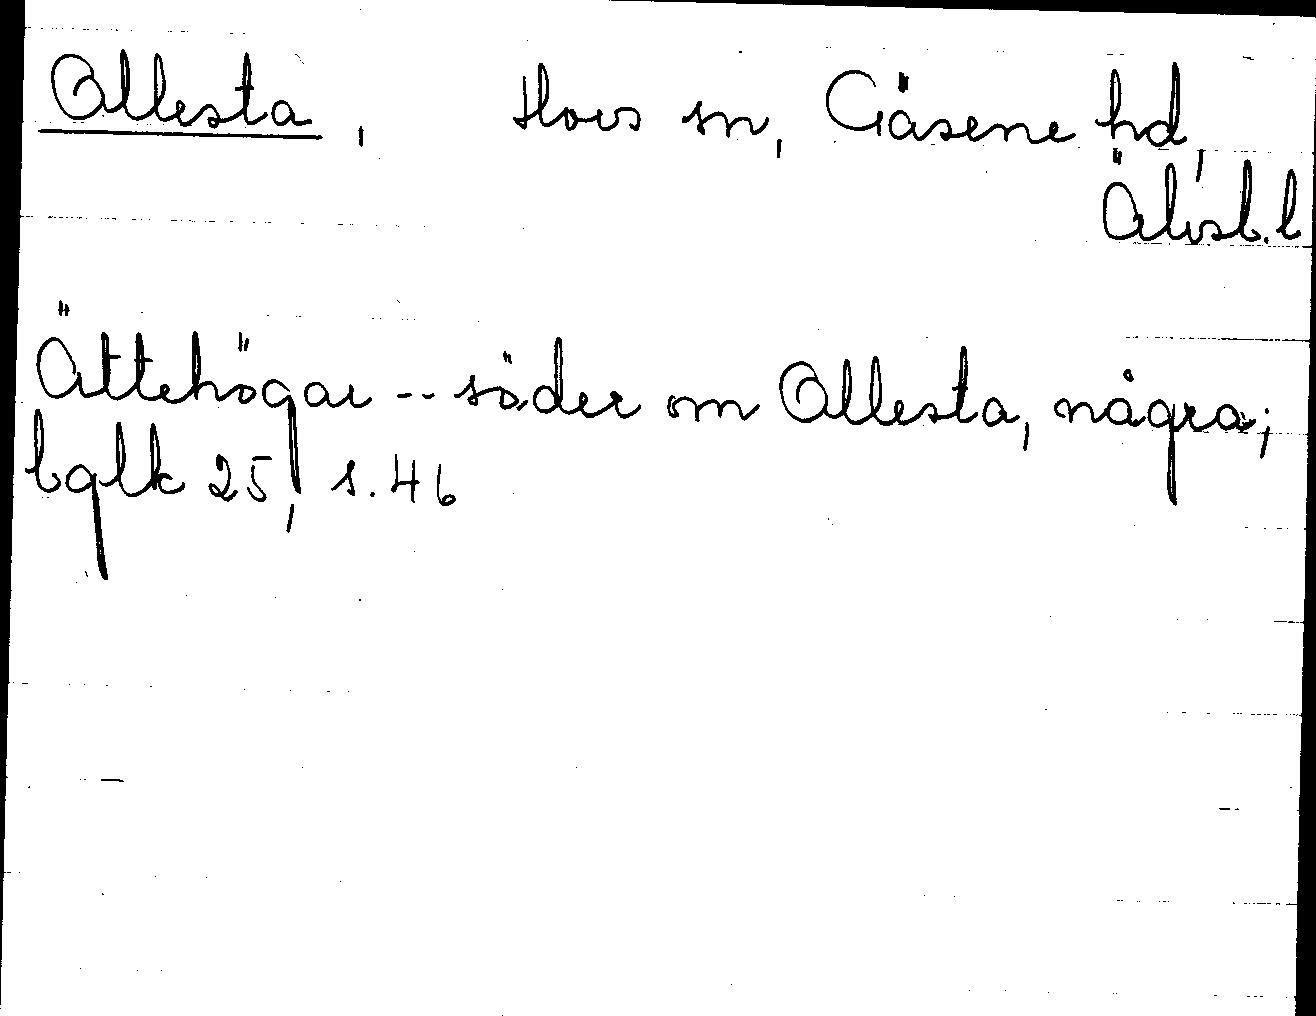 Ollesta, Hovs sn, Gäsene hd,
Älvsb.l
Ättehögar -- söder om Ollesta, några;
bglk 25, s. 46